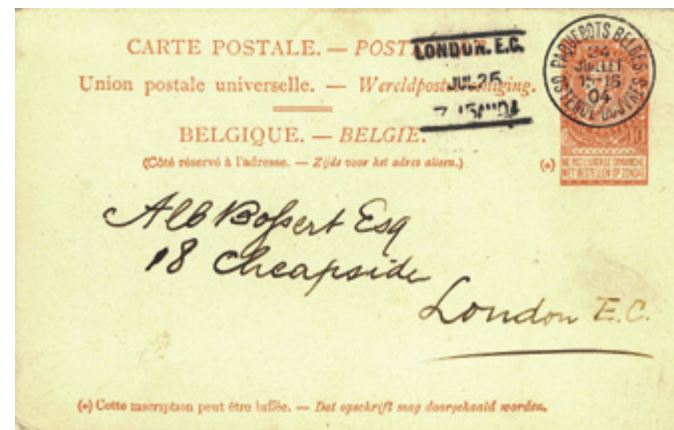 CARTE POSTALE. — POST
Union postale universelle. — Wereldpostvereeniging.
BELGIQUE. — BELGIE.
(Côté réservé à l'adresse. — Zijde voor het adres alleen.)
(*)
LONDON. E.C.
JUL 25
04
PAQUEBOTS BELGES
24
JUILLET
15-16
04
OSTENDE DOUVRES
10
NE PAS LIVRER LE DIMANCHE
NIET BESTELLEN OP ZONDAG
Alb Bossert Esq
18 Cheapside
London E.C.
(*) Cette inscription peut être biffée. — Dat opschrift mag doorgehaald worden.